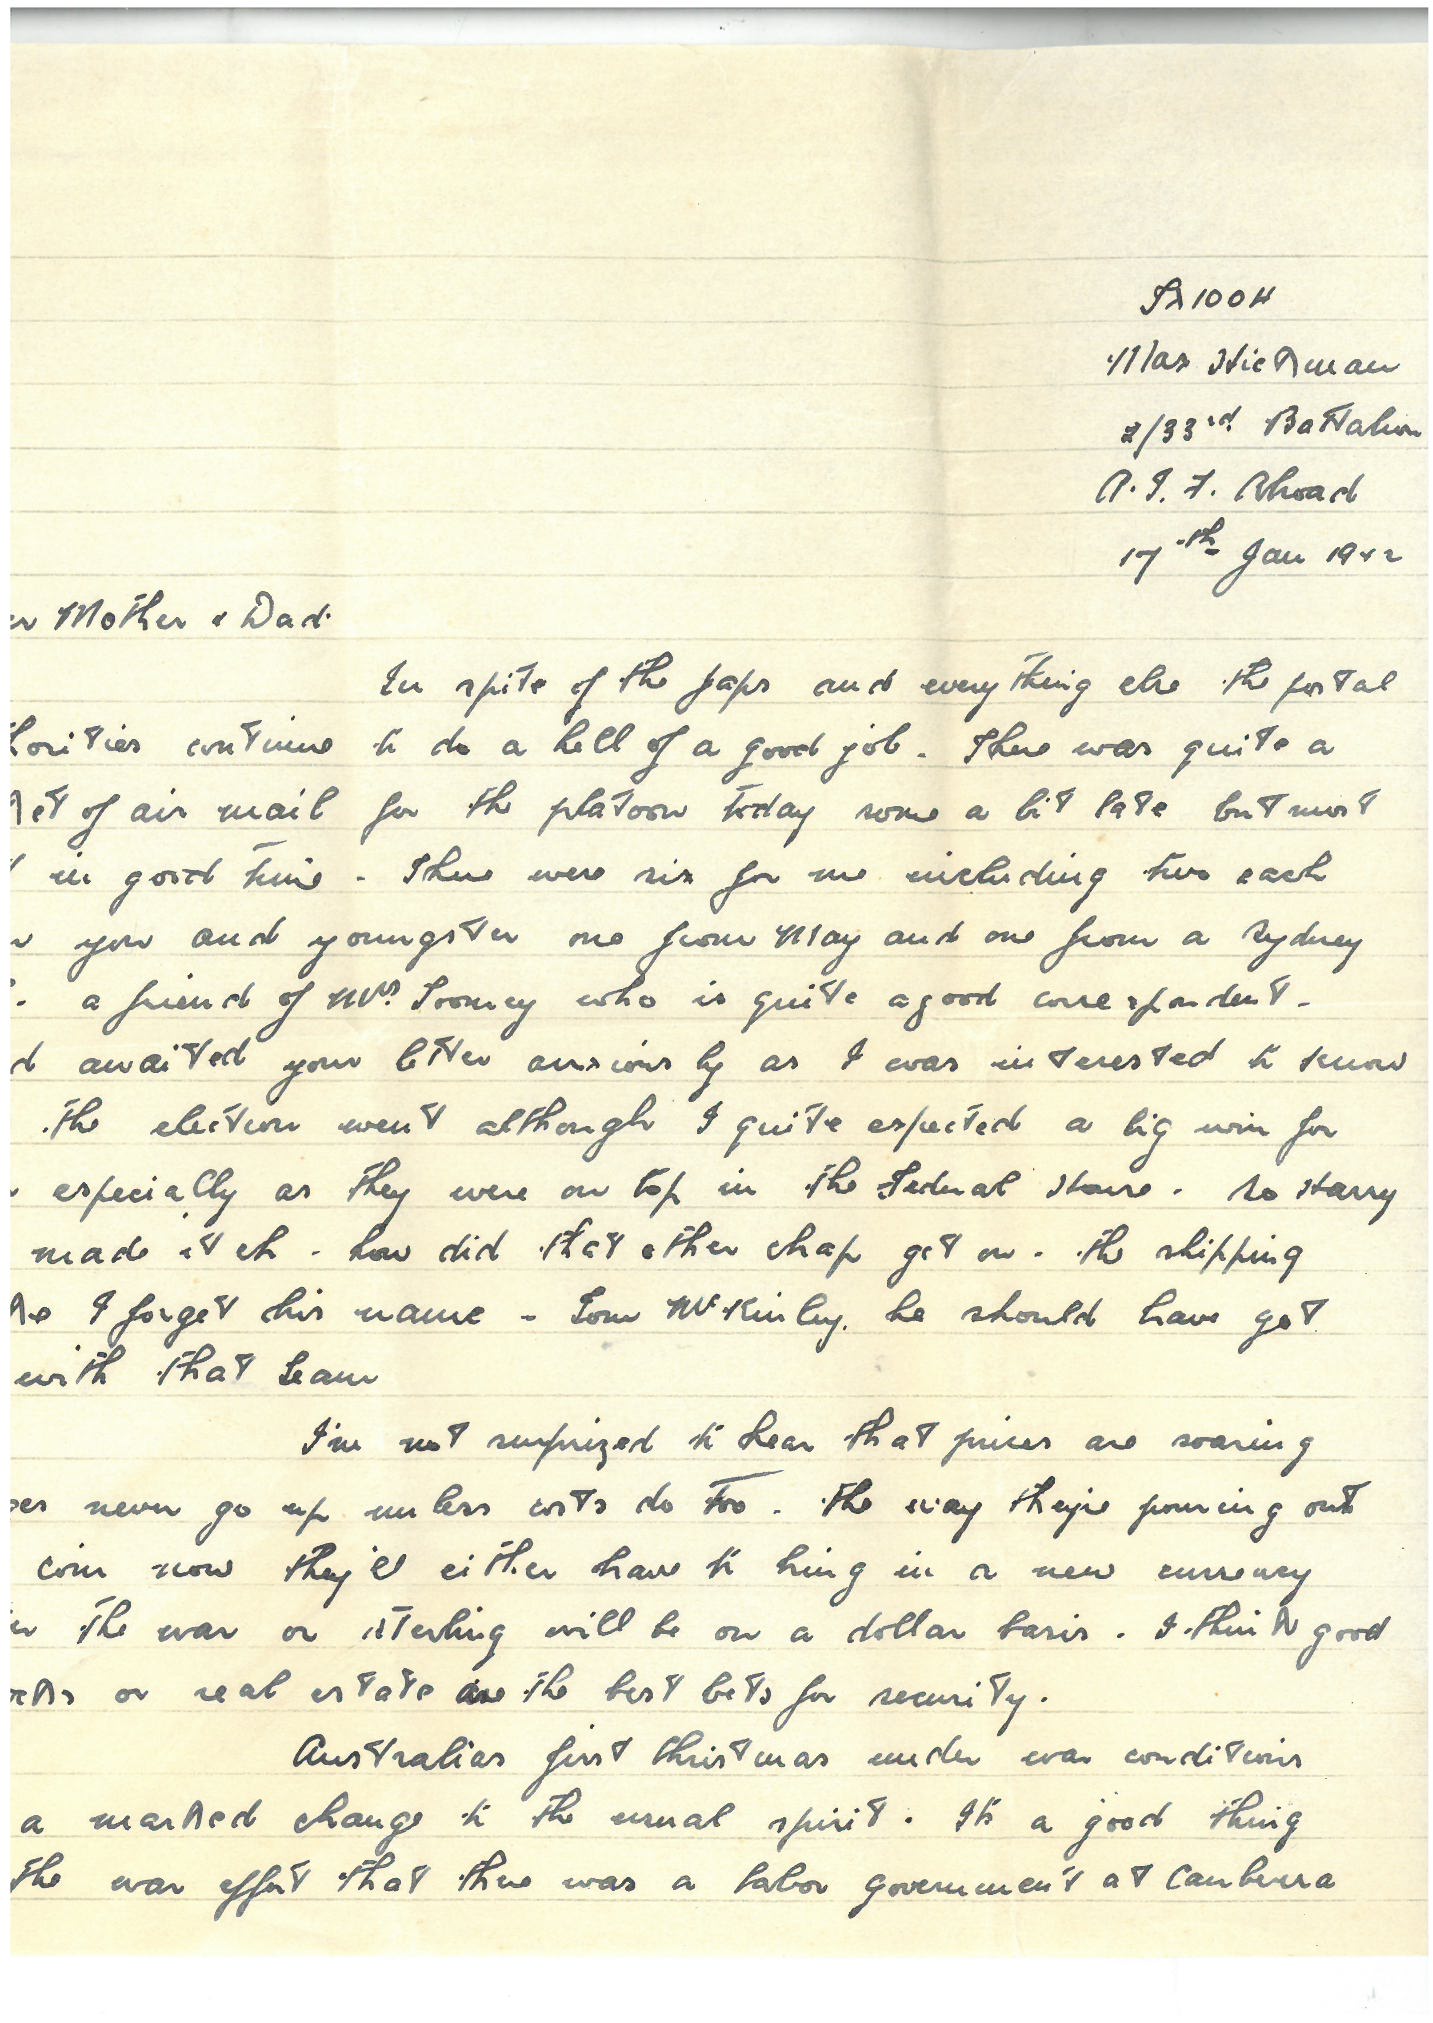 Max Hickman
2/33rd Battalion
A.I.F. Abroad
17th Jan 1942
er Mother & Dad.
In spite of the Japs and everything else the postal
horities continue to do a hell of a good job. There was quite a
ket of air mail for the platoon today some a bit late but most
in good time - There were six for me including two each
you and youngster one from May and one from a Sydney
a friend of Mrs. Toomey who is quite a good correspondent.
d awaited your letter anxiously as I was interested to know
the election went although I quite expected a big win for
especially as they were on top in the Federal House. So Harry
made it eh. how did that other chap get on. the shipping
ke I forget his name - Tom McKinley. he should have got
with that team
I'm not surprized to hear that prices are soaring
ges never go up unless costs do too. The way they're pouring out
coin now they'll either have to bring in a new currency
er the war or sterling will be on a dollar basis. I think good
ocks or real estate are the best bets for security.
Australias first Christmas under war conditions
a marked change to the usual spirit. Its a good thing
the war effort that there was a labor government at Canberra